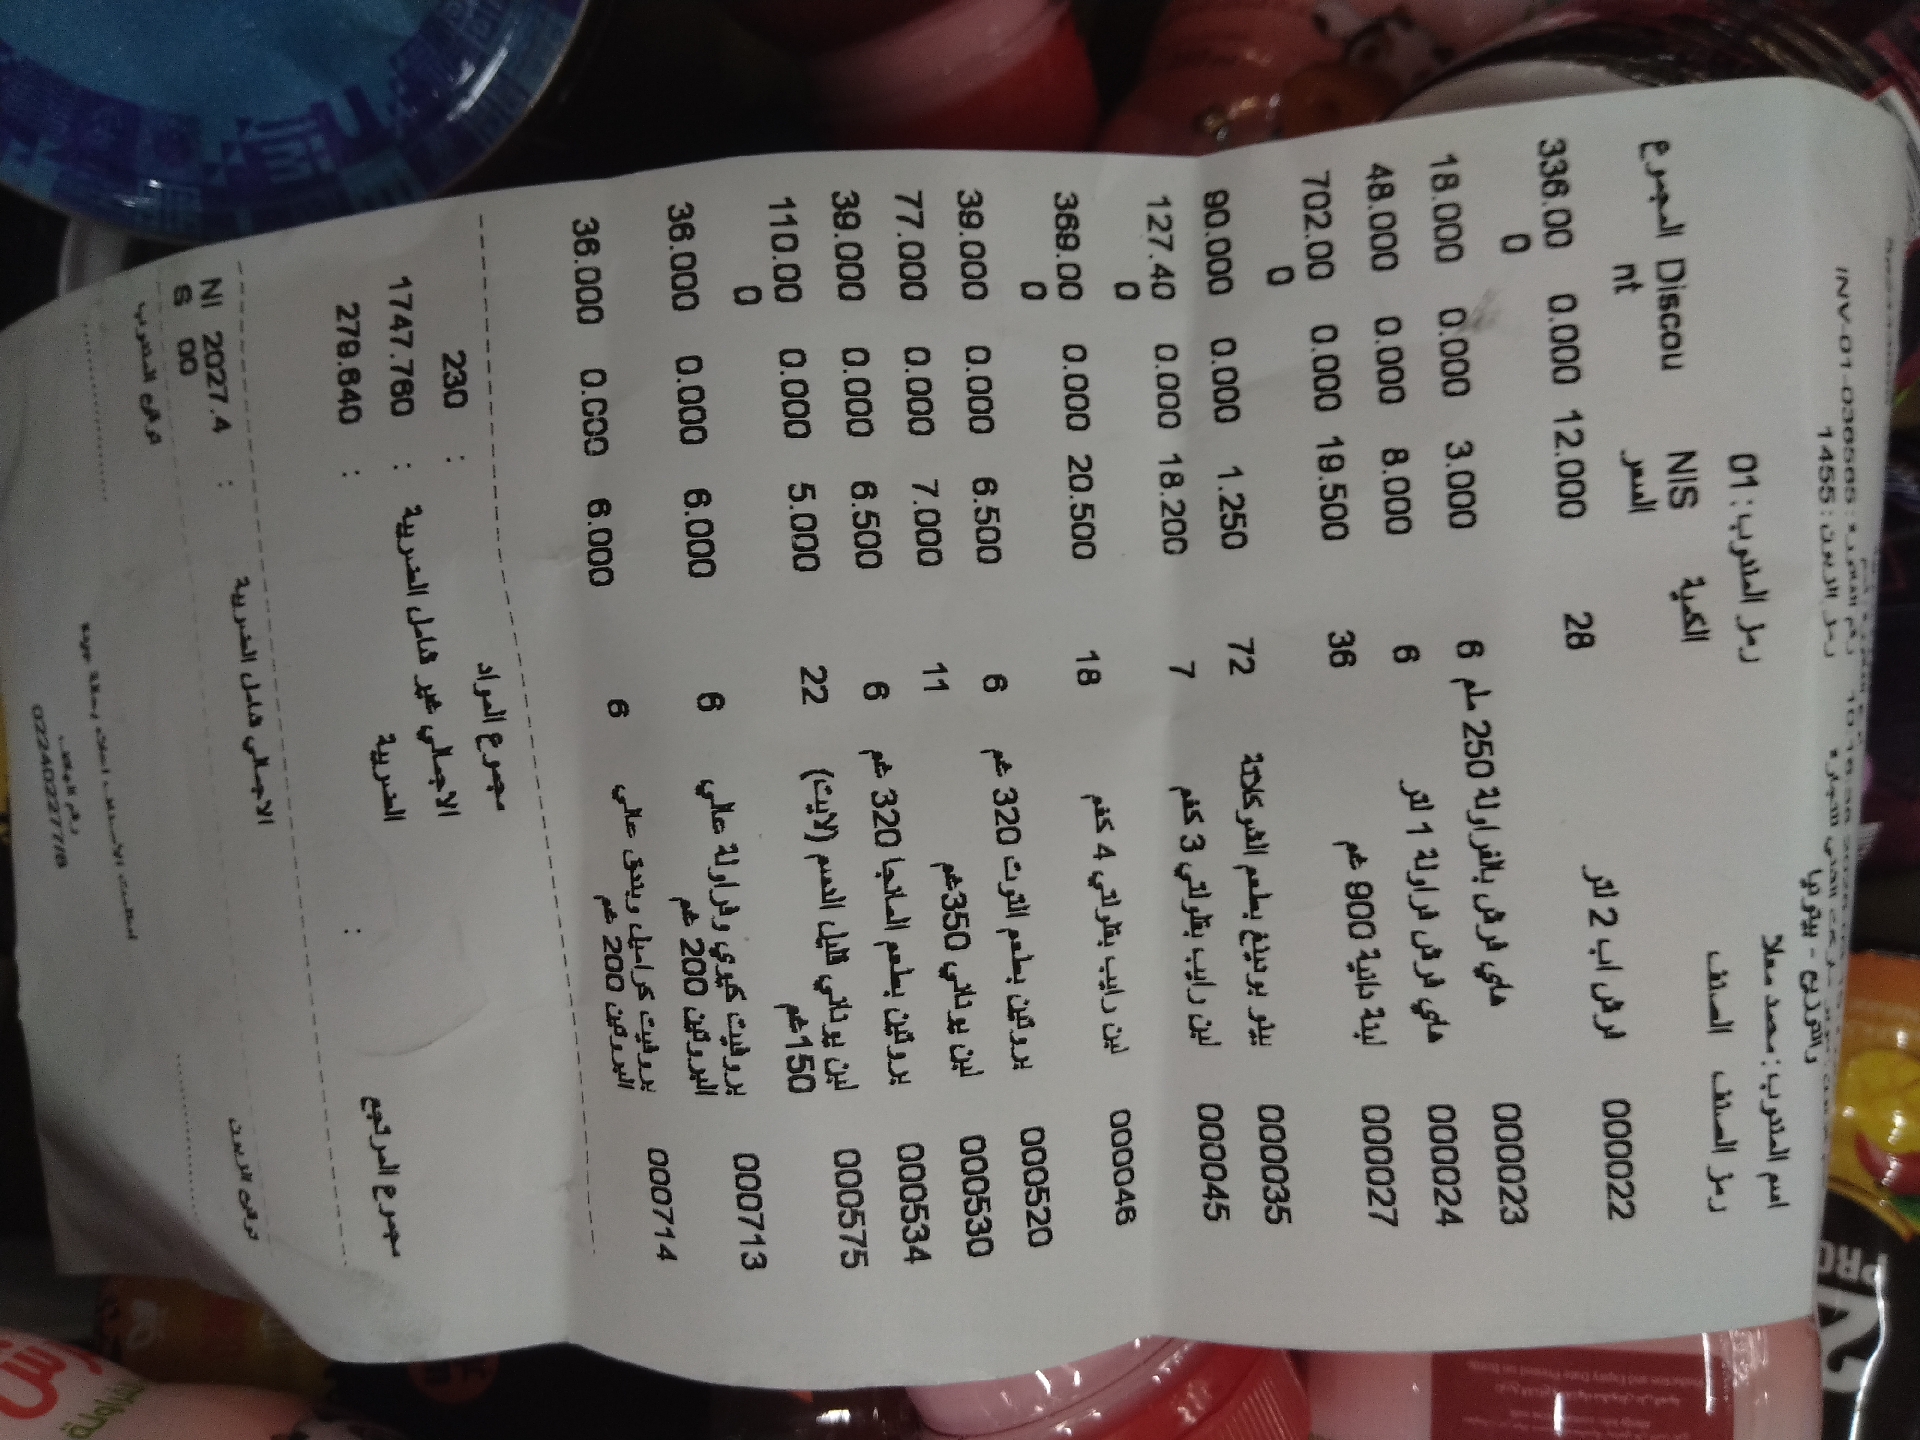 والتوزيع - بيتونيا
رمز الزبون : 1455
اسم المندوب : محمد معلا
رمز المندوب : 01
رمز الصنف الصنف الكمية NIS السعر Discount المجموع
000022 فرش اب 2 لتر 28 12.000 0.000 336.000
000023 ماي فرش بالفراولة 250 ملم 6 3.000 0.000 18.000
000024 ماي فرش فراولة 1 لتر 6 8.000 0.000 48.000
000027 لبنة دانية 900 غم 36 19.500 0.000 702.000
000035 بيتو بودينغ بطعم الشوكلاتة 72 1.250 0.000 90.000
000045 لبن رايب بقلولتي 3 كغم 7 18.200 0.000 127.400
000046 لبن رايب بقلولتي 4 كغم 18 20.500 0.000 369.000
000520 بروتين بطعم التوت 320 غم 6 6.500 0.000 39.000
000530 لبن يوناني 350غم 11 7.000 0.000 77.000
000534 بروتين بطعم المانجا 320 غم 6 6.500 0.000 39.000
000575 لبن يوناني قليل الدسم (لايت) 150غم 22 5.000 0.000 110.000
000713 بروفيت كيوي وفراولة عالي البروتين 200 غم 6 6.000 0.000 36.000
000714 بروفيت كراميل وبندق عالي البروتين 200 غم 6 6.000 0.000 36.000
مجموع المواد : 230
الاجمالي غير شامل الضريبة : 1747.760
مجموع المرتجع : الضريبة : 279.640
الاجمالي شامل الضريبة : 2027.400 NIS
توقيع الزبون
توقيع المندوب
022402277/8